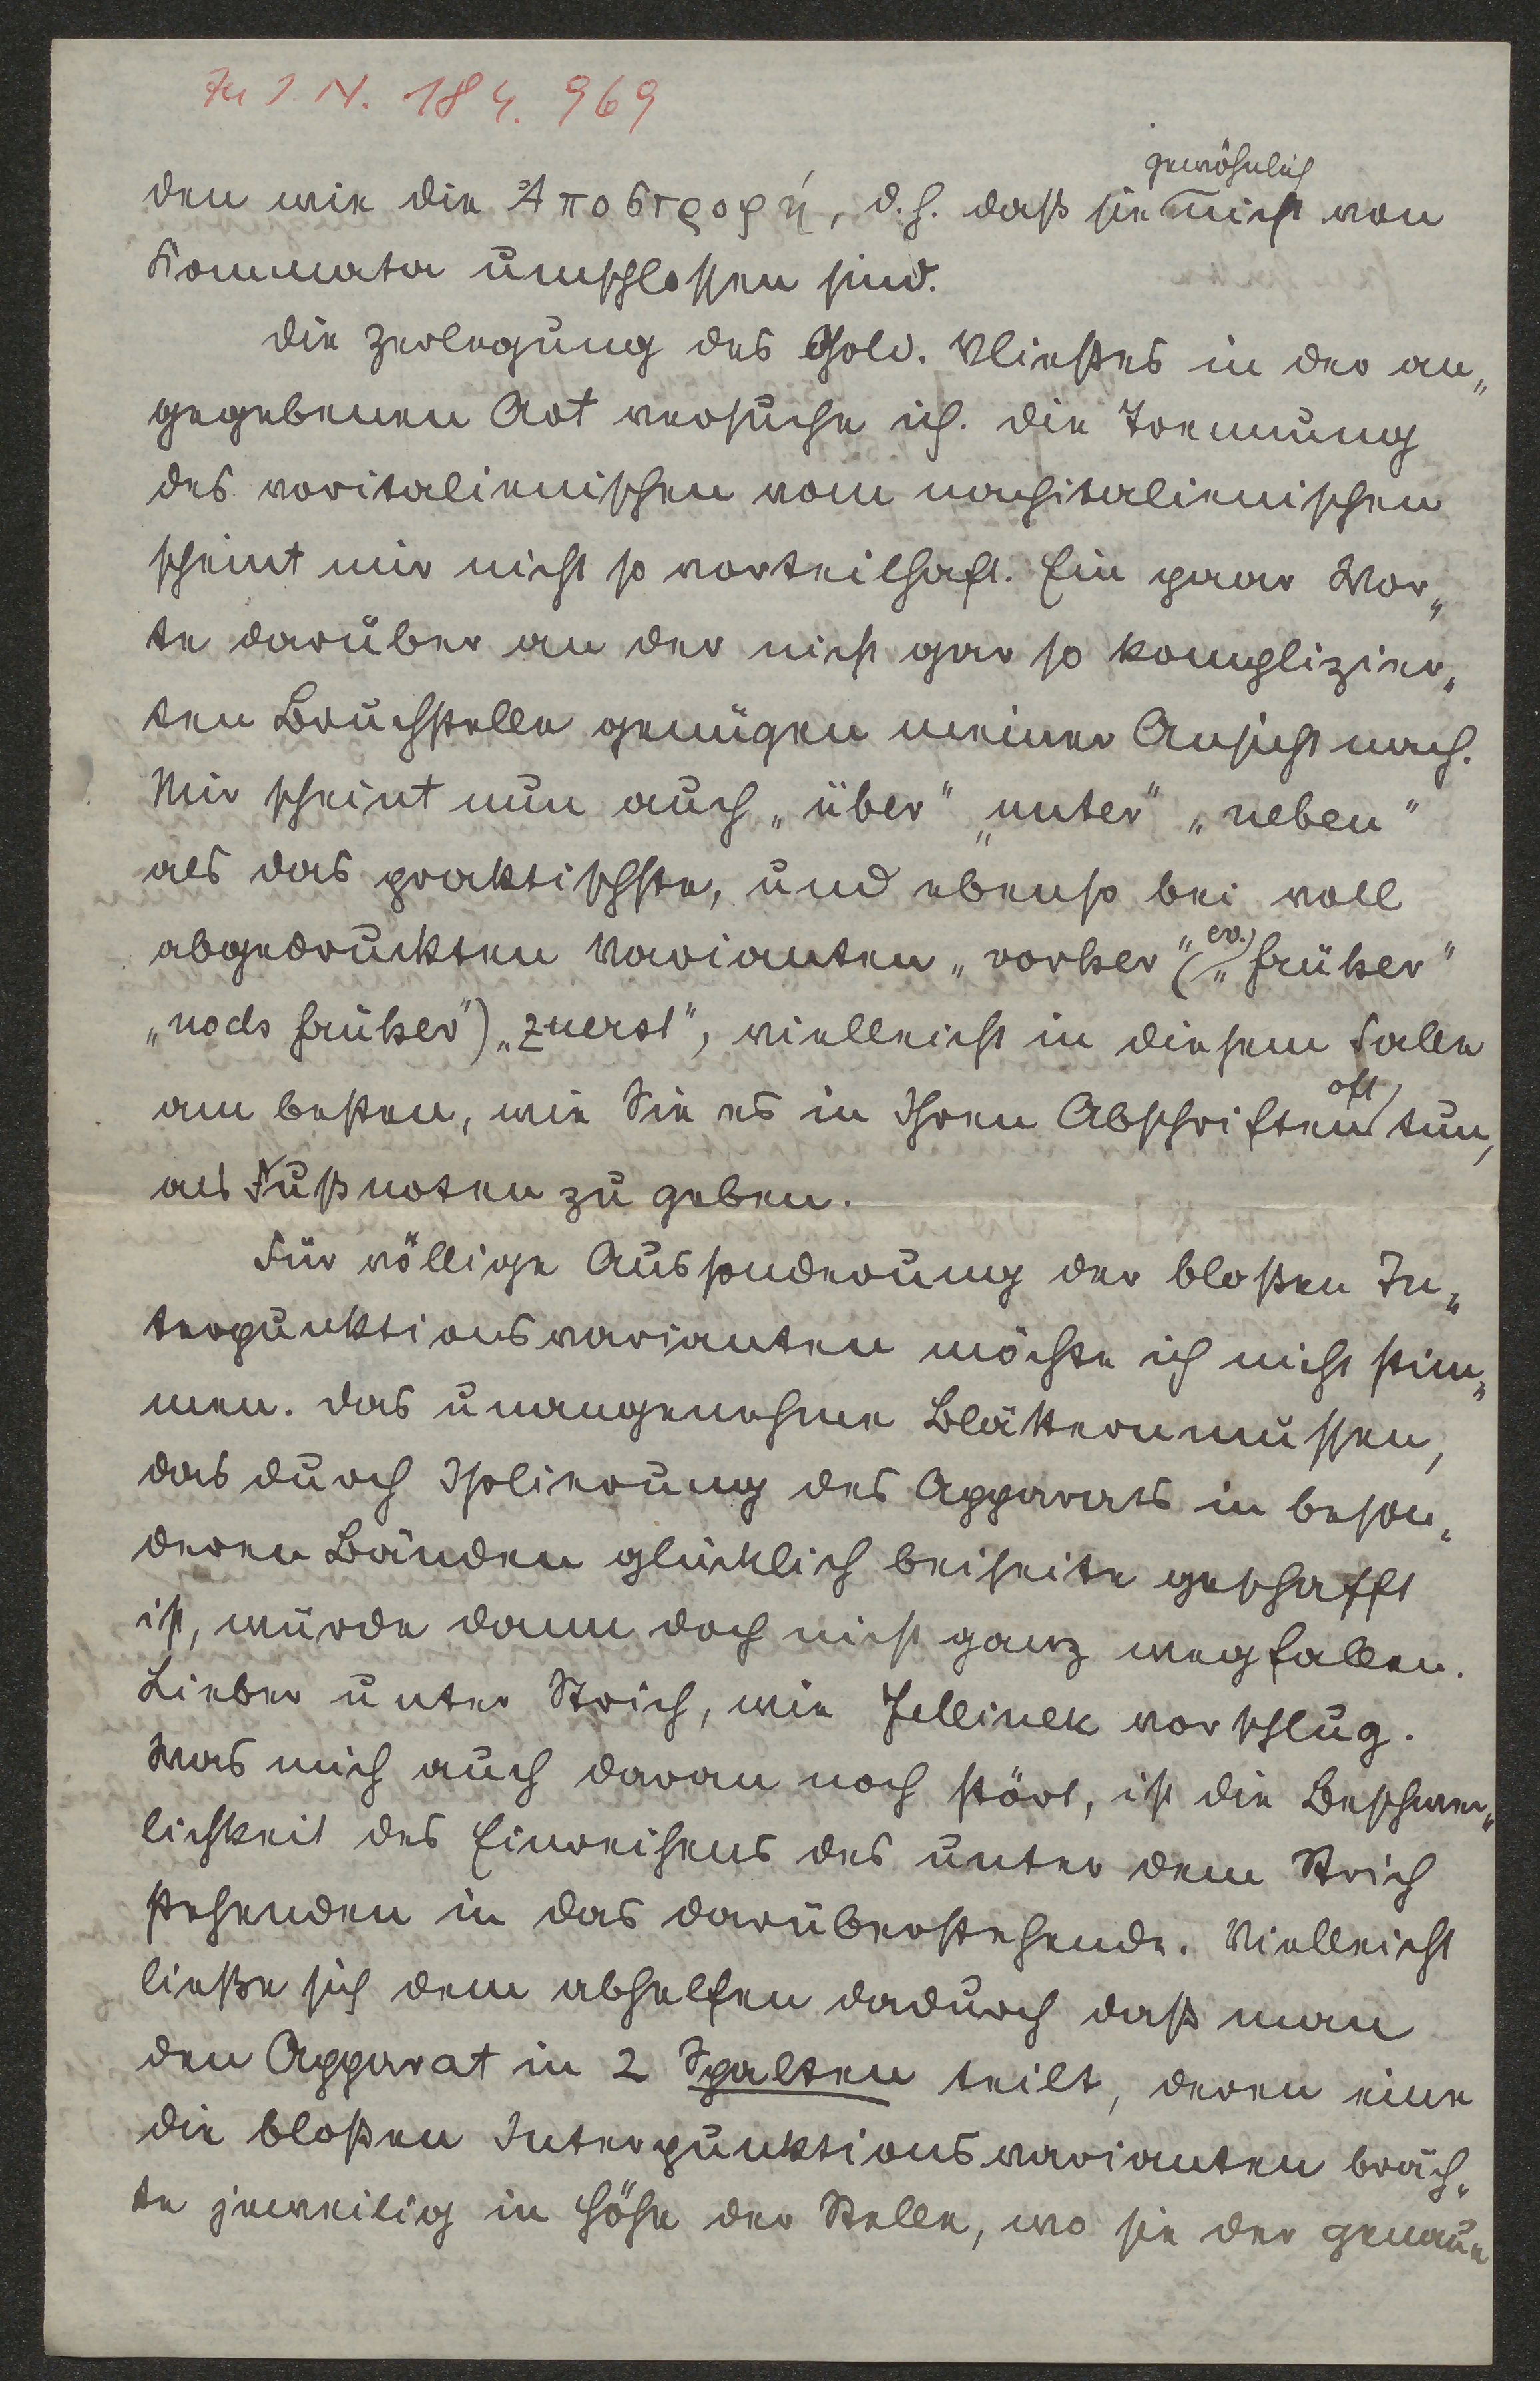 Zu I. N. 184.969
gewöhnlich
den wie die Ἀποστροφή, d. h. daß sie nicht von
Kommata umschlossen sind.
Die Zerlegung des Gold. Vließes in der an„
gegebenen Art versuche ich. Die Trennung
des voritalienischen vom nachitalienischen
scheint mir nicht so vorteilhaft. Ein paar Wor„
te darüber an der nicht gar so komplizier„
ten Bruchstelle genügen meiner Ansicht nach.
Mir scheint nun auch „über“ „unter“ „neben“
als das praktischste, und ebenso bei voll
abgedruckten Varianten „vorher“ (ev. „früher“
„noch früher“) „zuerst“, vielleicht in diesem Falle
am besten, wie Sie es in Ihren Abschriften oft tun,
als Fußnoten zu geben.
Für völlige Aussonderung der bloßen In„
terpunktionsvarianten möchte ich nicht stim„
men. Das unangenehme Blätternmüssen,
das durch Isolierung des Apparats in beson„
deren Bänden glücklich beiseite geschafft
ist, würde dann doch nicht ganz wegfallen.
Lieber unter Strich, wie Jellinek vorschlug.
Was mich auch daran noch stört, ist die Beschwer„
lichkeit des Einreihens des unter dem Strich
stehenden in das darüberstehende. Vielleicht
ließe sich dem abhelfen dadurch daß man
den Apparat in 2 Spalten teilt, deren eine
die bloßen Interpunktionsvarianten bräch„
te jeweilig in Höhe der Stelle, wo sie der genaue